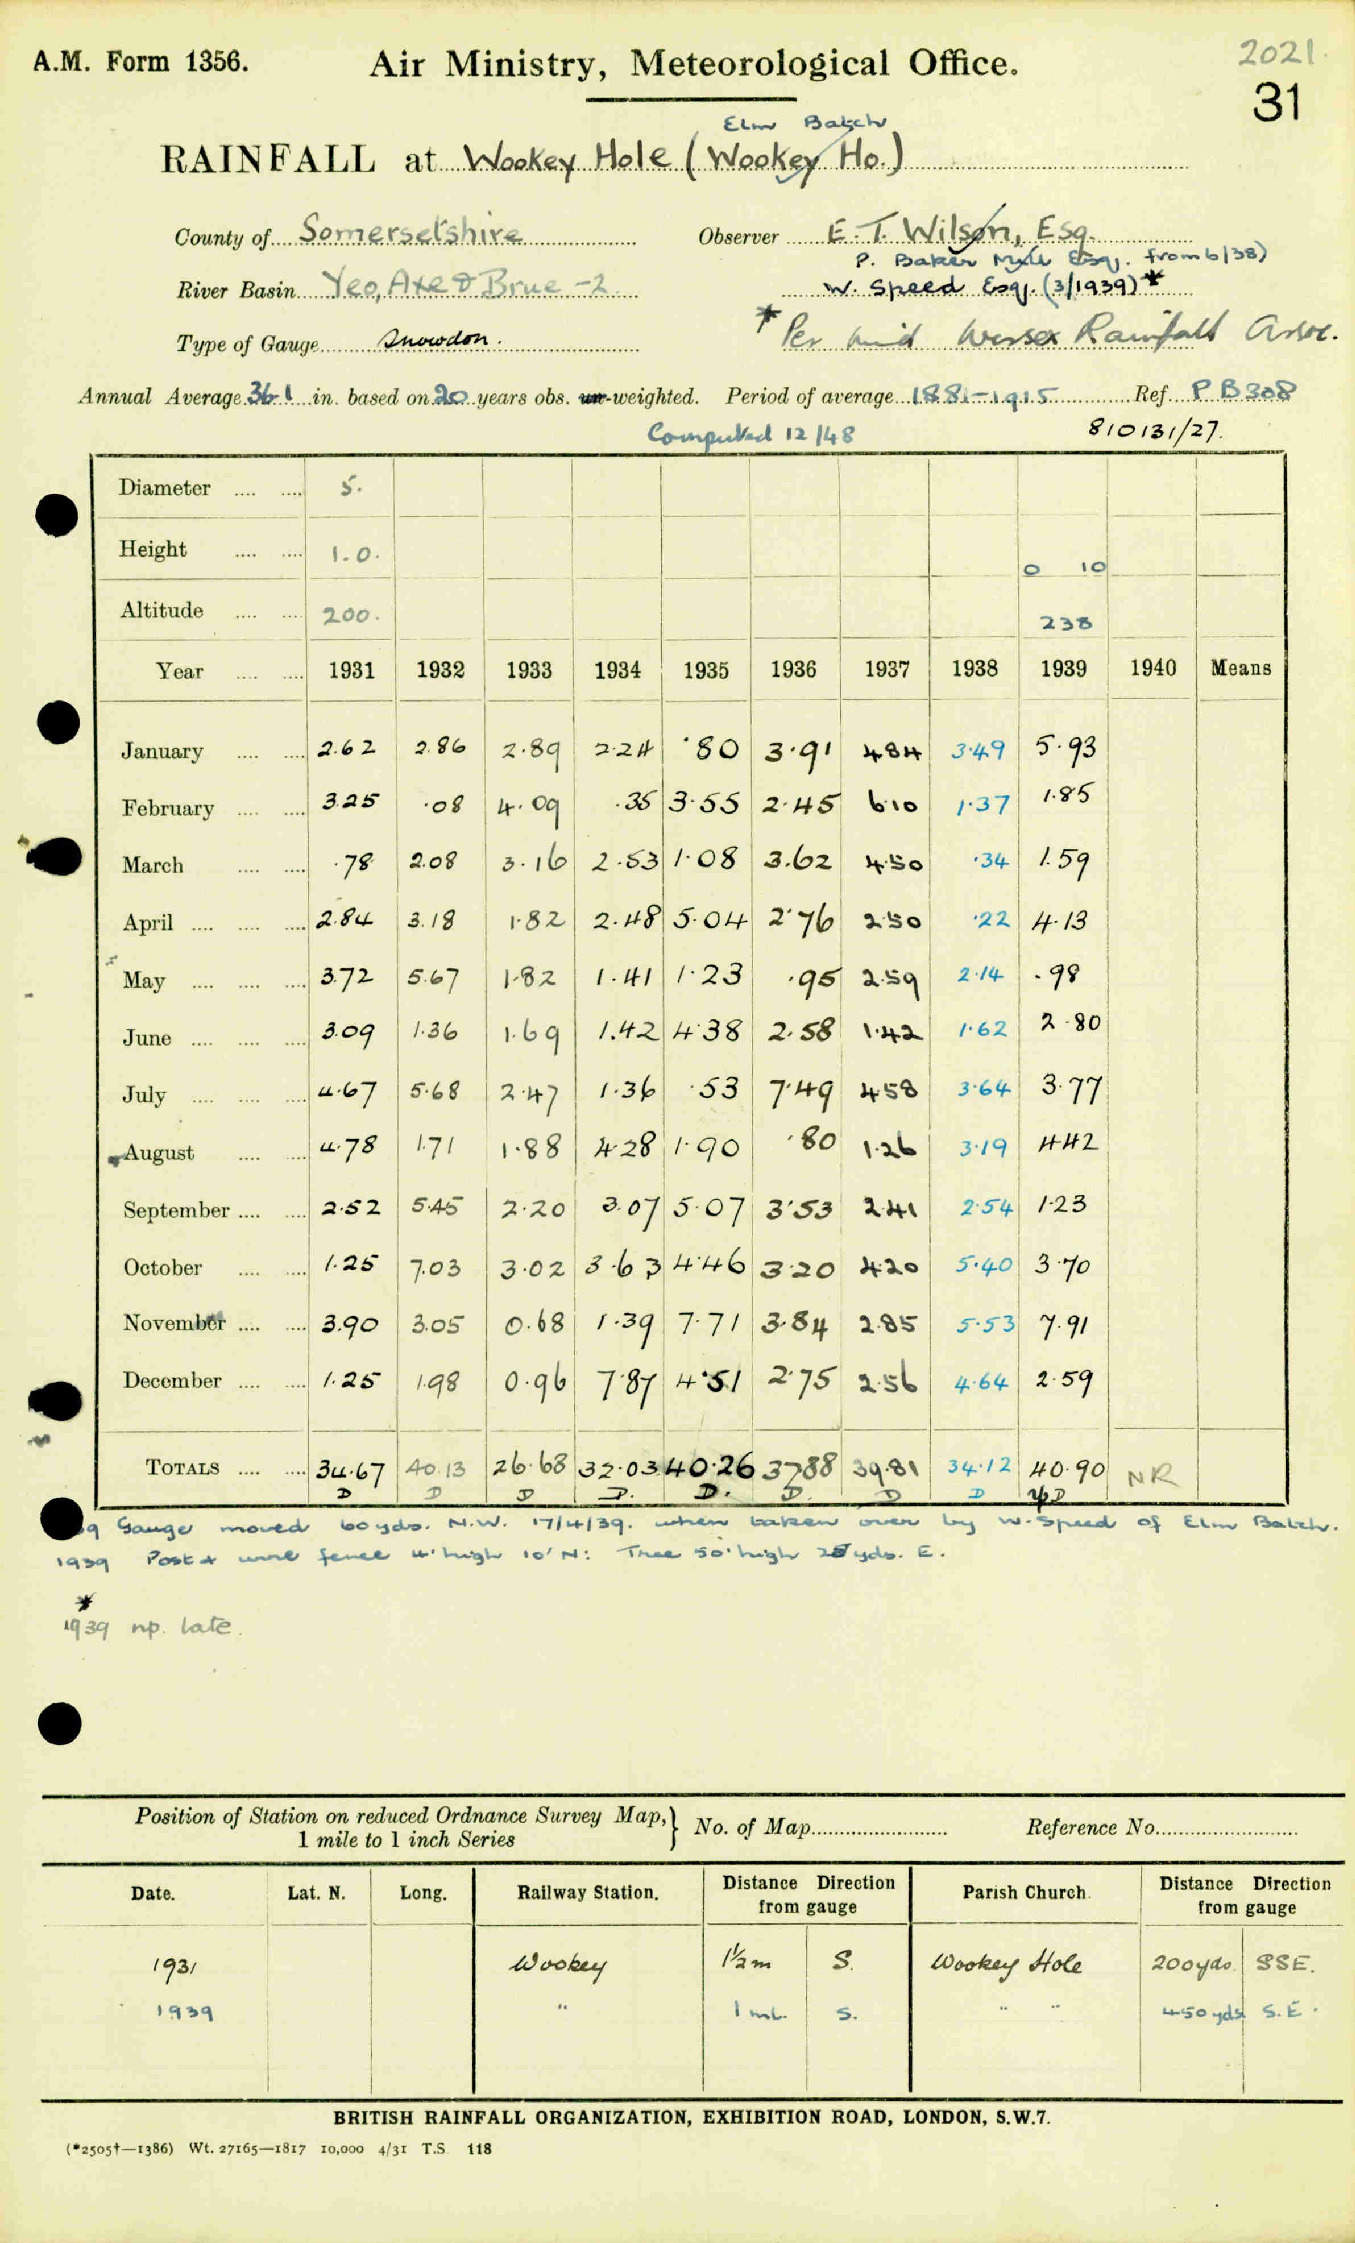 A.M. Form 1356. Air Ministry, Meteorological Office. 2021
31
Elm Batch
RAINFALL at Wookey Hole (Wookey Ho.)
County of Somersetshire Observer E. T. Wilson, Esq.
P. Baker Esq. from 6/38)
River Basin Yeo, Axe & Brue -2 W. Speed Esq. (3/1939)*
Type of Gauge Snowdon. * Per Mid Wessex Rainfall Assoc.
Annual Average 36.1 in. based on 20 years obs. un-weighted. Period of average 1881-1915 Ref. P B308
Computed 12/48 810131/27.
Diameter .... .... 5.
Height .... .... 1.0. 0 10
Altitude .... .... 200. 238
Year .... .... 1931 1932 1933 1934 1935 1936 1937 1938 1939 1940 Means
January .... .... 2.62 2.86 2.89 2.24 .80 3.91 4.84 3.49 5.93
February .... .... 3.25 .08 4.09 .35 3.55 2.45 6.10 1.37 1.85
March .... .... .78 2.08 3.16 2.53 1.08 3.62 4.50 .34 1.59
April .... .... .... 2.84 3.18 1.82 2.48 5.04 2.76 2.50 .22 4.13
May .... .... .... 3.72 5.67 1.82 1.41 1.23 .95 2.59 2.14 .98
June .... .... .... 3.09 1.36 1.69 1.42 4.38 2.58 1.42 1.62 2.80
July .... .... .... 4.67 5.68 2.47 1.36 .53 7.49 4.58 3.64 3.77
August .... .... 4.78 1.71 1.88 4.28 1.90 .80 1.26 3.19 4.42
September .... .... 2.52 5.45 2.20 3.07 5.07 3.53 2.41 2.54 1.23
October .... .... 1.25 7.03 3.02 3.63 4.46 3.20 4.20 5.40 3.70
November .... .... 3.90 3.05 0.68 1.39 7.71 3.84 2.85 5.53 7.91
December .... .... 1.25 1.98 0.96 7.87 4.51 2.75 2.56 4.64 2.59
TOTALS .... .... 34.67 40.13 26.68 32.03 40.26 37.88 39.81 34.12 40.90 NR
D D D D. D. D. D D D
39 Gauge moved 60 yds. N.W. 17/4/39. when taken over by W. Speed of Elm Batch.
1939 Post & wire fence 4' high 10' N: Tree 50' high 25 yds. E.
*
1939 np. late.
Position of Station on reduced Ordnance Survey Map, } No. of Map Reference No.
1 mile to 1 inch Series
Date. Lat. N. Long. Railway Station. Distance Direction from gauge Parish Church. Distance Direction from gauge
1931 Wookey 1½ m S. Wookey Hole 200 yds. SSE.
1939 " 1 ml. S. " " 450 yds S.E.
BRITISH RAINFALL ORGANIZATION, EXHIBITION ROAD, LONDON, S.W.7.
(*2505†—1386) Wt. 27165—1817 10,000 4/31 T.S. 118